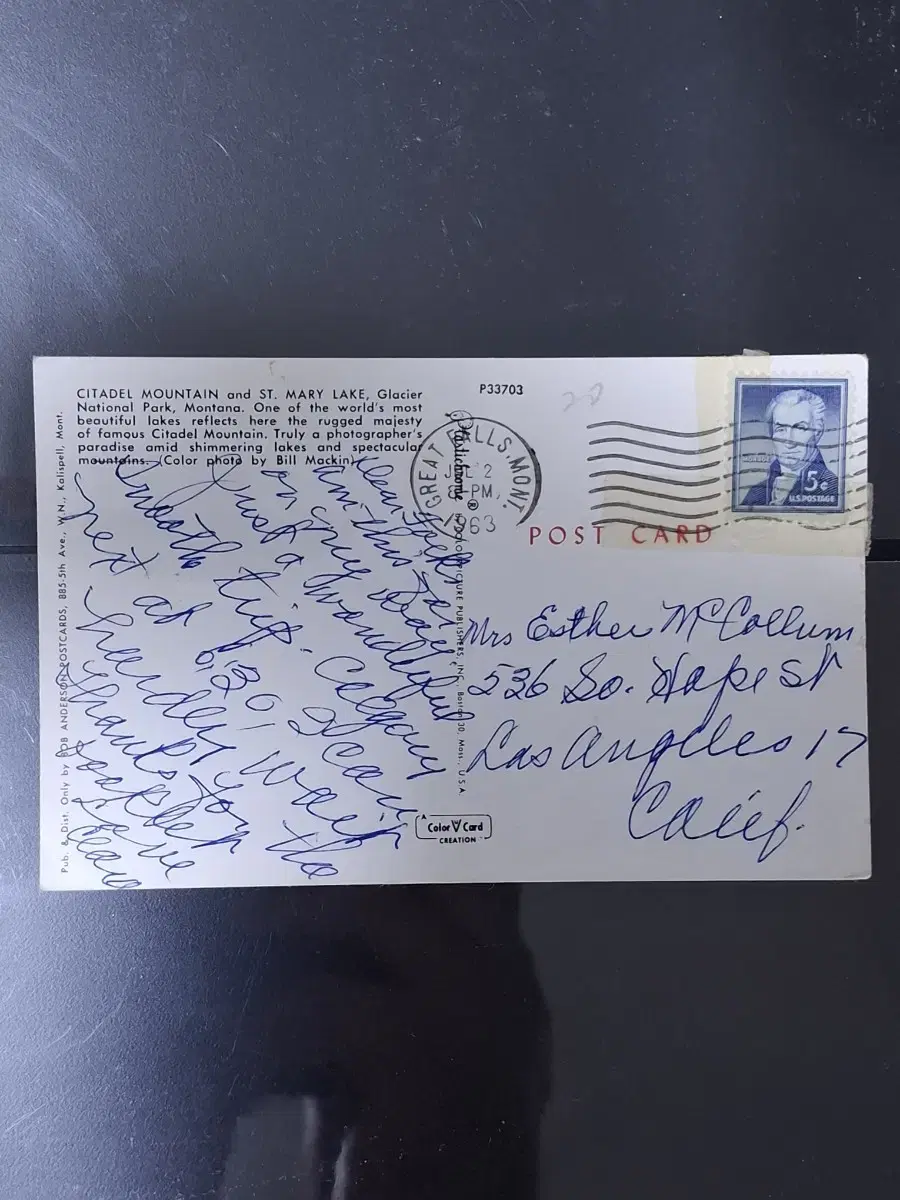 CITADEL MOUNTAIN and ST. MARY LAKE, Glacier
National Park, Montana. One of the world's most
beautiful lakes reflects here the rugged majesty
of famous Citadel Mountain. Truly a photographer's
paradise amid shimmering lakes and spectacular
mountains. (Color photo by Bill Mackin)
Pub. & Dist. Only by BOB ANDERSON POSTCARDS, 885-5th Ave., W.N., Kalispell, Mont.
Dear
I'm this far
on my way
Just a wonderful
Smooth trip. Calgary
next at 6:30, I can
hardly wait
Thanks for
the
Love
P33703
20
GREAT FALLS, MONT.
PM
1963
Plastichrome ®
PUBLISHERS, INC., Boston 30, Mass., U.S.A.
5¢
U.S. POSTAGE
POST CARD
Mrs Esther McCollum
536 So. Hope St
Los Angeles 17
Calif.
A
Color Card
CREATION